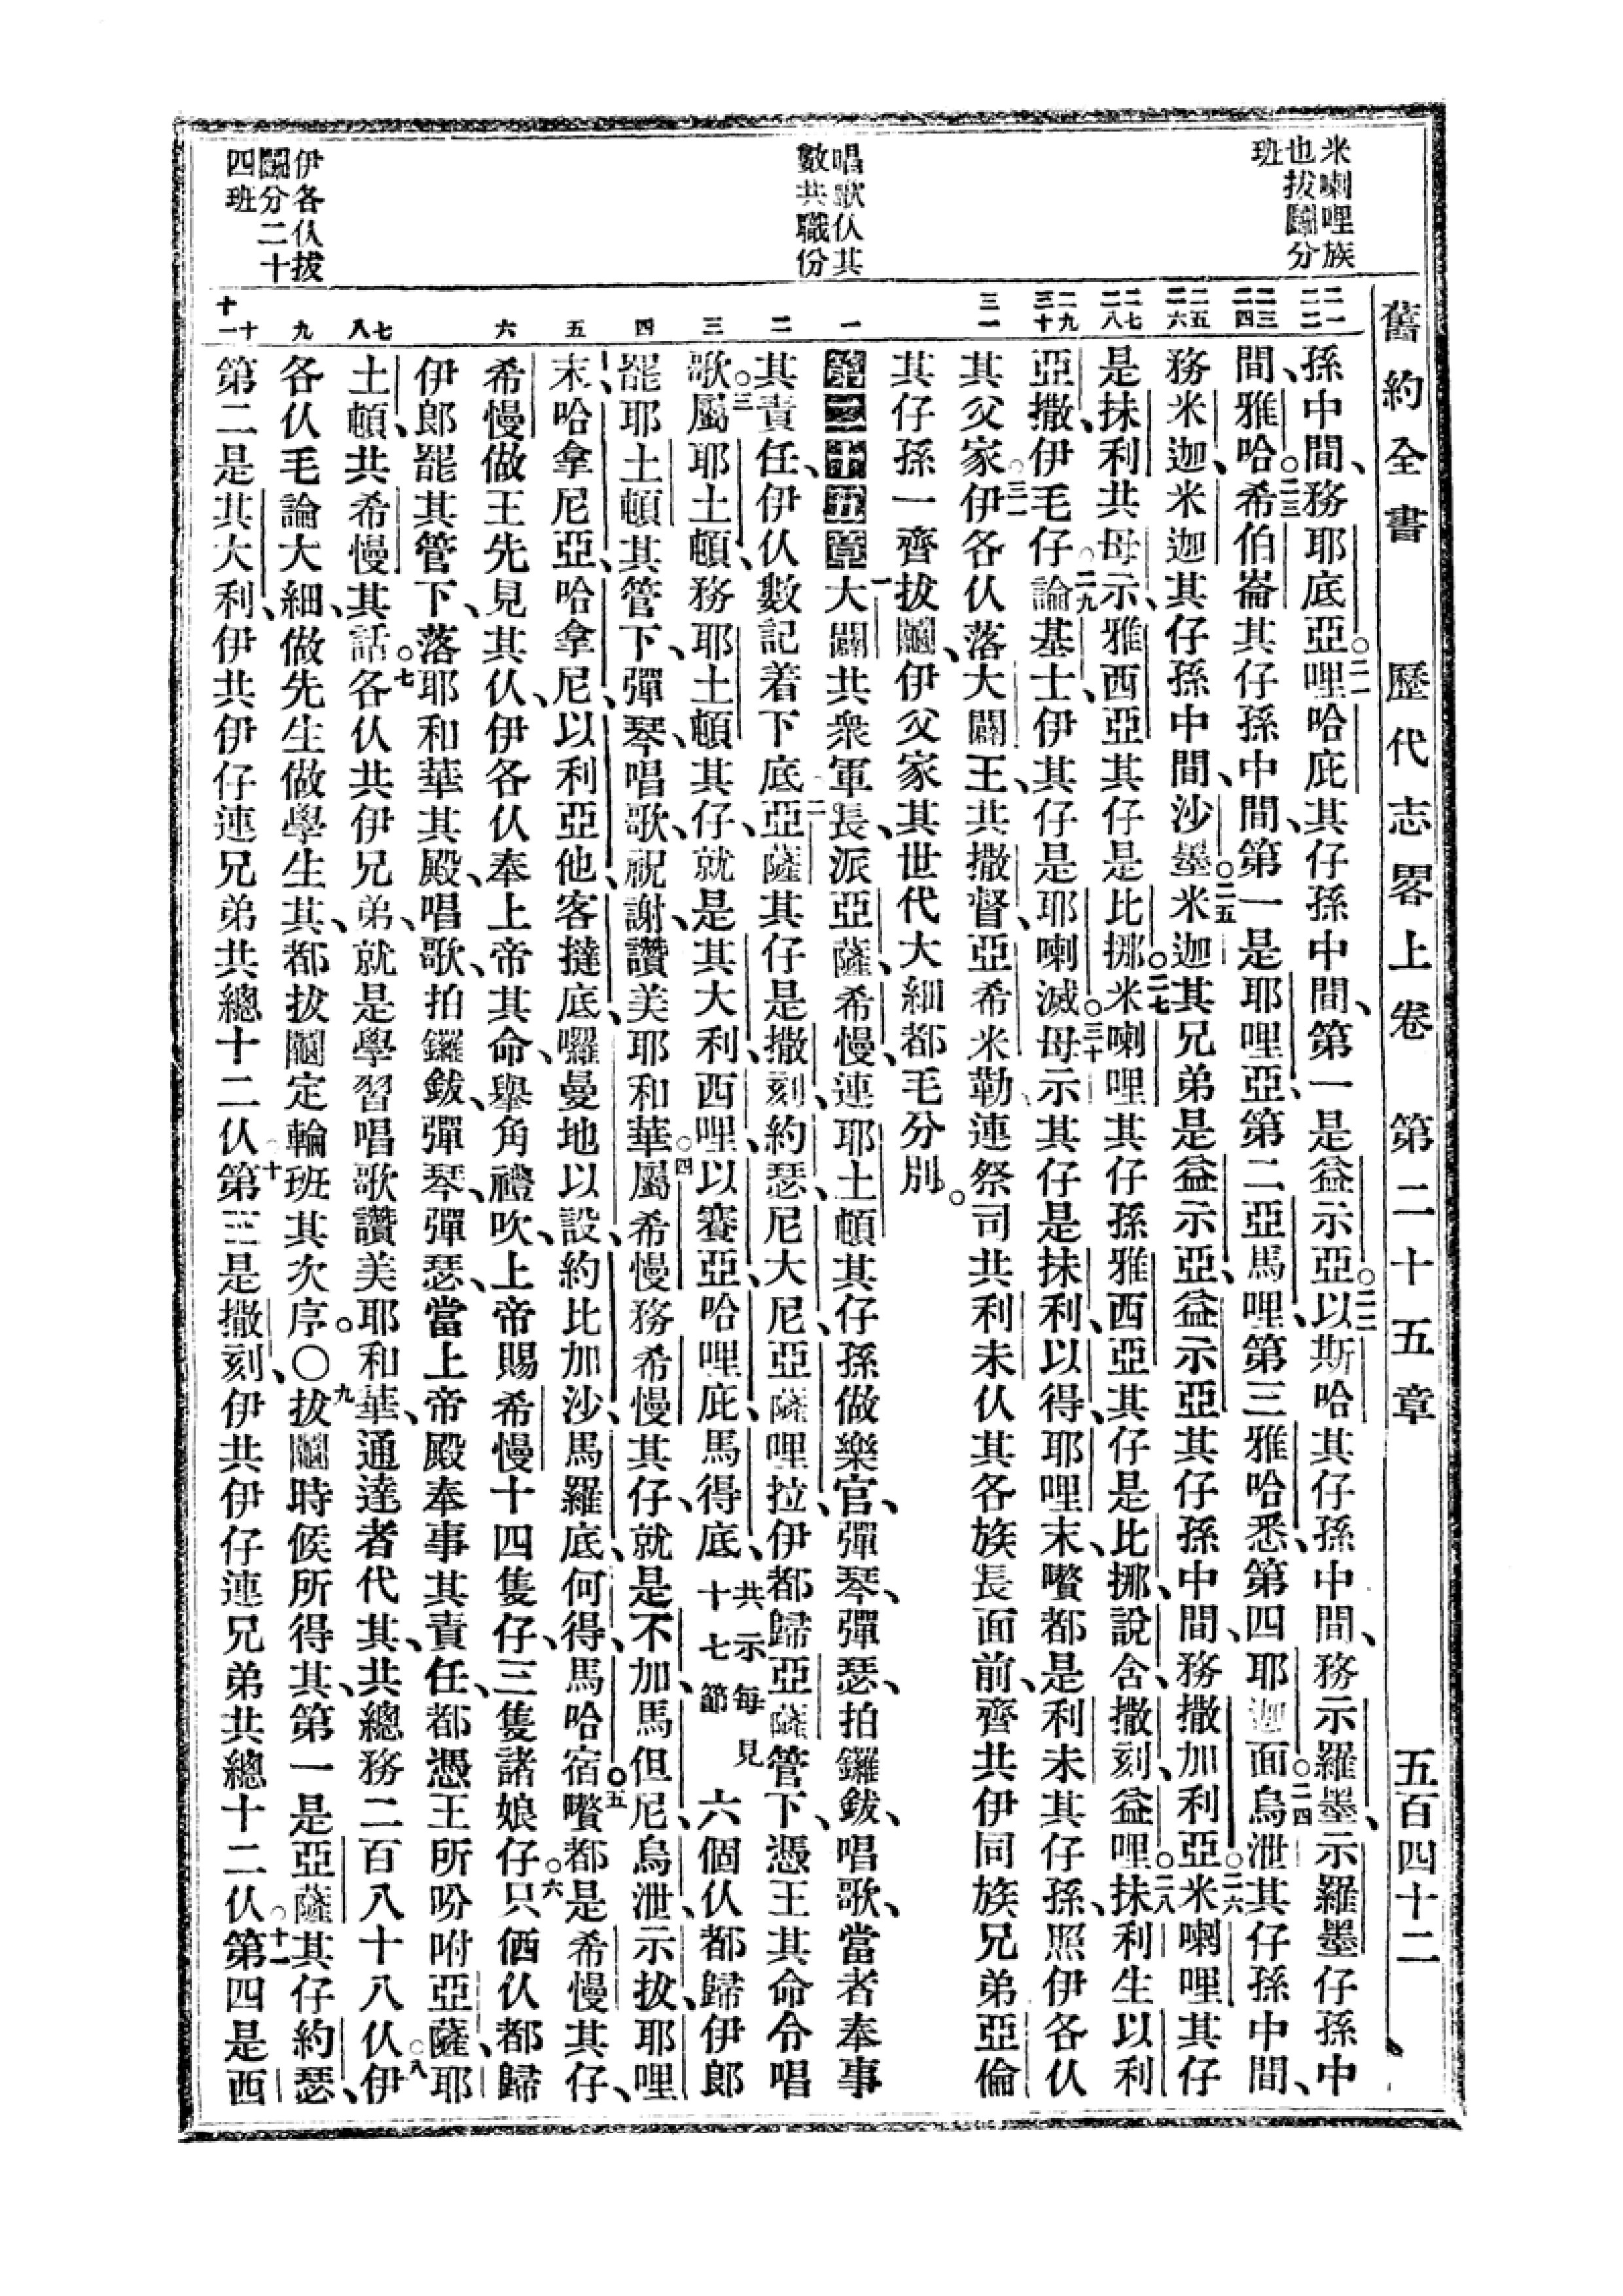 舊約全書 歷代志畧上卷 第二十五章 五百四十二
米喇哩族
也拔鬮分
班
唱歌仈其
數共職份
伊各仈拔
鬮分二十
四班
二一 二二
二三 二四
二五 二六
二七 二八
二九 三十
三一
一
二
三
四
五
六
七 八
九
十 十一
孫中間、務耶底亞。二一哩哈庇其仔孫中間、第一是益示亞。二二以斯哈其仔孫中間、務示羅墨、示羅墨仔孫中
間、雅哈。二三希伯崙其仔孫中間、第一是耶哩亞、第二亞馬哩、第三雅哈悉、第四耶迦面。二四烏泄其仔孫中間、
務米迦、米迦其仔孫中間、沙墨。二五米迦其兄弟是益示亞、益示亞其仔孫中間、務撒加利亞。二六米喇哩其仔
是抹利共母示、雅西亞其仔是比挪。二七米喇哩其仔孫雅西亞其仔是比挪、說含、撒刻、益哩。二八抹利生以利
亞撒、伊毛仔。二九論基士、伊其仔是耶喇滅。三十母示其仔是抹利、以得、耶哩末、囋都是利未其仔孫、照伊各仈
其父家。三一伊各仈落大闢王、共撒督、亞希米勒、連祭司共利未仈其各族長面前、齊共伊同族兄弟亞倫
其仔孫一齊拔鬮、伊父家其世代大細都毛分別。
第二十五章 一大闢共衆軍長、派亞薩、希慢、連耶土頓其仔孫做樂官、彈琴、彈瑟、拍鑼鈸、唱歌、當者奉事
其責任、伊仈數記着下底。二亞薩其仔是撒刻、約瑟、尼大尼、亞薩哩拉、伊都歸亞薩管下、憑王其命令唱
歌。三屬耶土頓、務耶土頓其仔、就是其大利、西哩、以賽亞、哈哩庇、馬得底、共示每見十七節六個仈都歸伊郎
罷耶土頓其管下、彈琴、唱歌、祝謝讚美耶和華。四屬希慢、務希慢其仔、就是不加、馬但尼、烏泄、示拔、耶哩
末、哈拿尼亞、哈拿尼、以利亞他、客撻底、囉曼地以設、約比加沙、馬羅底、何得、馬哈宿。五囋都是希慢其仔、
希慢做王先見其仈、伊各仈奉上帝其命、舉角禮吹、上帝賜希慢十四隻仔、三隻諸娘仔。六只𠆧仈都歸
伊郎罷其管下、落耶和華其殿、唱歌、拍鑼鈸、彈琴、彈瑟、當上帝殿奉事其責任、都憑王所吩咐亞薩、耶
土頓、共希慢其話。七各仈共伊兄弟、就是學習唱歌讚美耶和華、通達者代其、共總務二百八十八仈。八伊
各仈毛論大細、做先生做學生其、都拔鬮定輪班其次序。〇九拔鬮時候所得其、第一是亞薩其仔約瑟、
第二是其大利、伊共伊仔連兄弟共總十二仈。十第三是撒刻、伊共伊仔連兄弟共總十二仈。十一第四是西